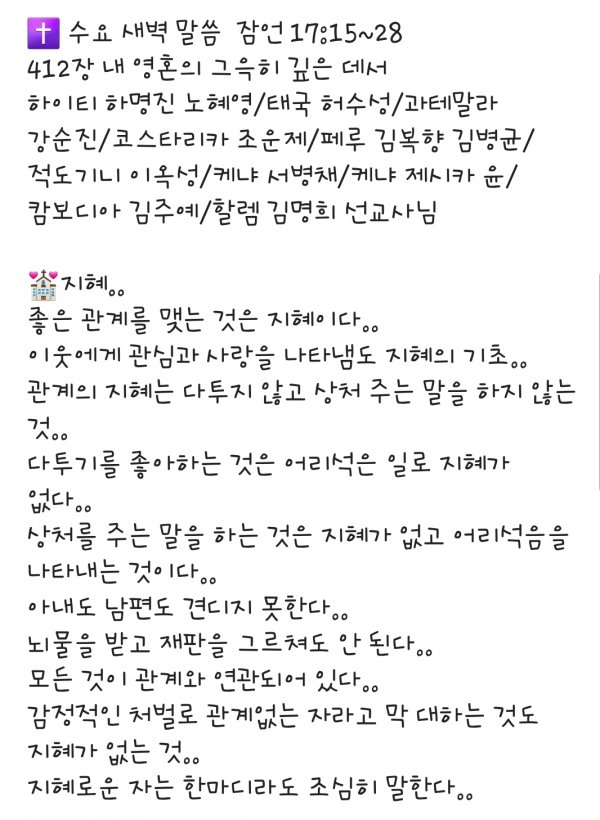 ✝ 수요 새벽 말씀  잠언 17:15~28
412장 내 영혼의 그윽히 깊은 데서
하이티 하명진 노혜영/태국 허수성/과테말라
강순진/코스타리카 조운제/페루 김복향 김병균/
적도기니 이옥성/케냐 서병채/케냐 제시카 윤/
캄보디아 김주예/할렘 김명희 선교사님
💒지혜。。
좋은 관계를 맺는 것은 지혜이다。。
이웃에게 관심과 사랑을 나타냄도 지혜의 기초。。
관계의 지혜는 다투지 않고 상처 주는 말을 하지 않는
것。。
다투기를 좋아하는 것은 어리석은 일로 지혜가
없다。。
상처를 주는 말을 하는 것은 지혜가 없고 어리석음을
나타내는 것이다。。
아내도 남편도 견디지 못한다。。
뇌물을 받고 재판을 그르쳐도 안 된다。。
모든 것이 관계와 연관되어 있다。。
감정적인 처벌로 관계없는 자라고 막 대하는 것도
지혜가 없는 것。。
지혜로운 자는 한마디라도 조심히 말한다。。